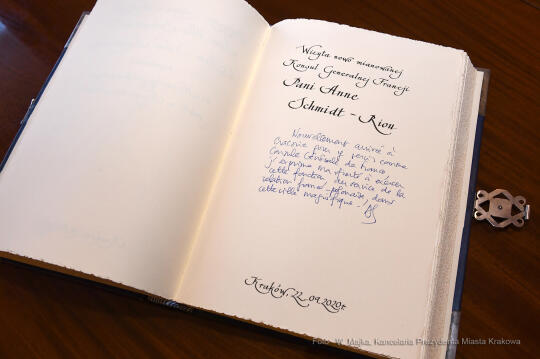 Wizyta nowo mianowanej
Konsul Generalnej Francji
Pani Anne
Schmidt - Riou
Nouvellement arrivée à
Cracovie pour y servir comme
Consule Générale de France,
j'exprime ma fierté à exercer
cette fonction au service de la
relation franco-polonaise, dans
cette ville magnifique.
Kraków, 22.09.2020r.
Foto: W. Majka, Kancelaria Prezydenta Miasta Krakowa